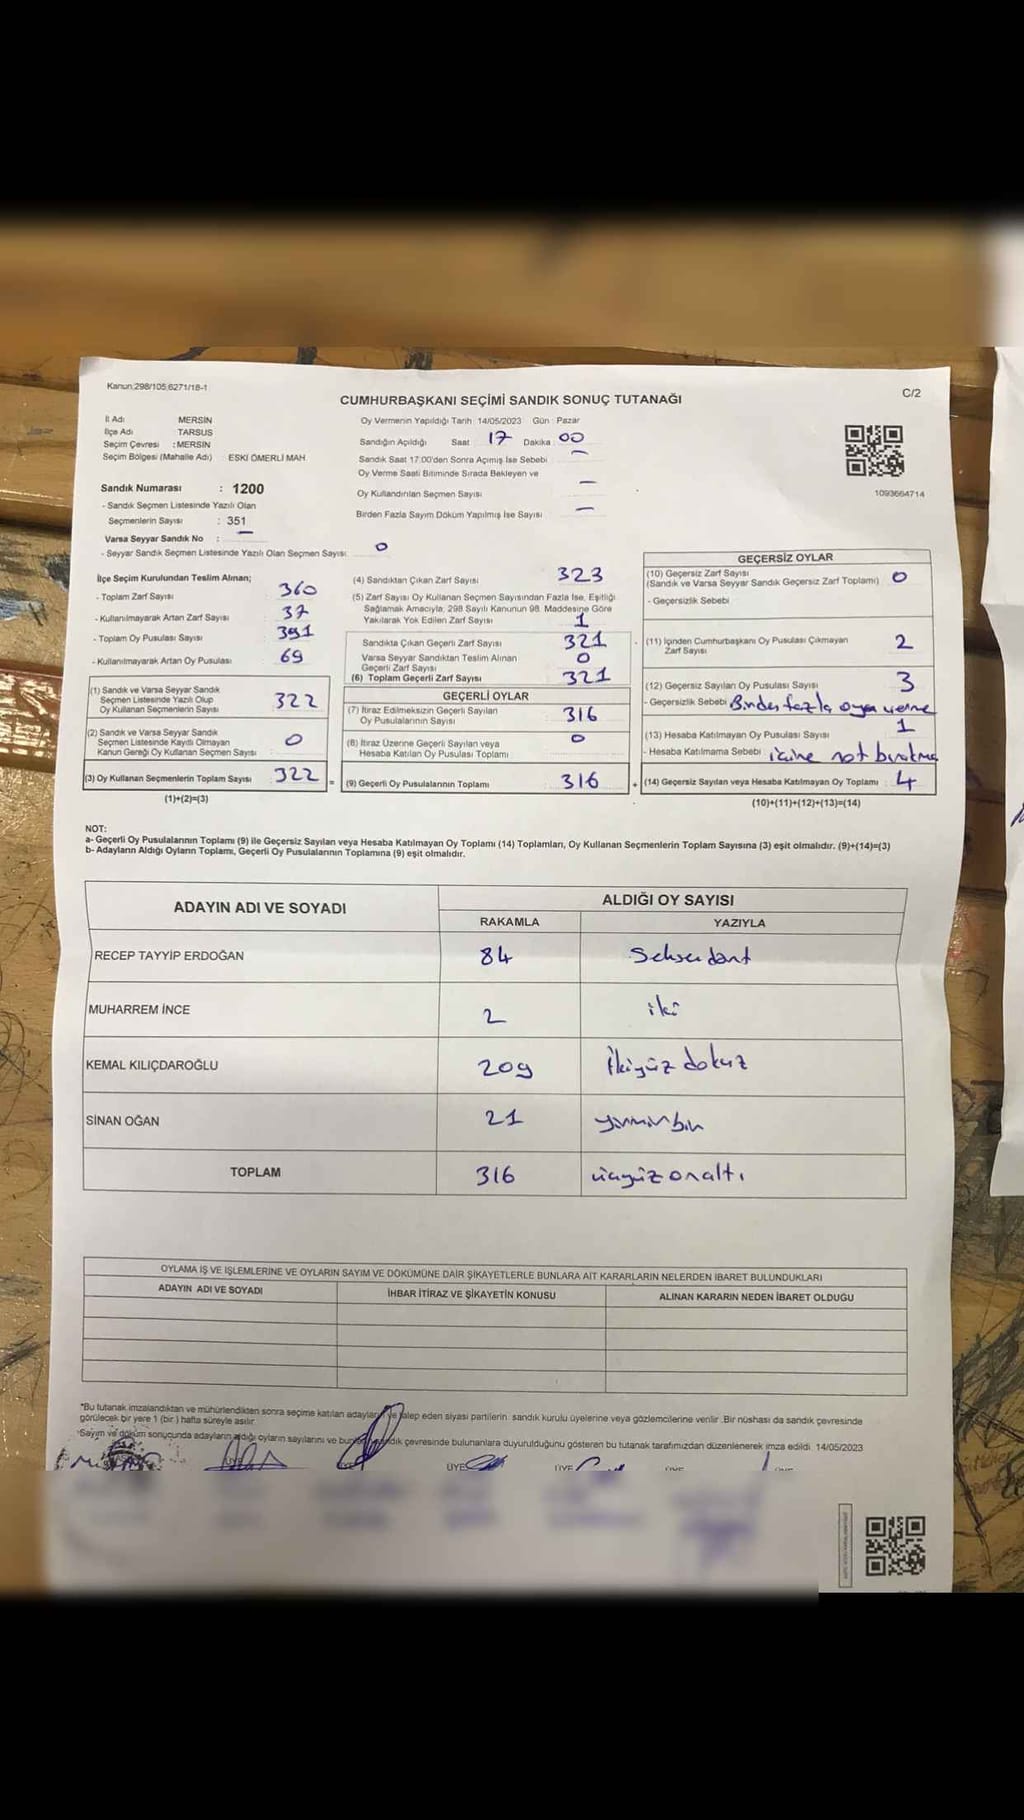 Kanun:298/105,6271/18-1
C/2
CUMHURBAŞKANI SEÇİMİ SANDIK SONUÇ TUTANAĞI
İl Adı : MERSİN
İlçe Adı : TARSUS
Seçim Çevresi : MERSİN
Seçim Bölgesi (Mahalle Adı) : ESKİ ÖMERLİ MAH.
Sandık Numarası : 1200
- Sandık Seçmen Listesinde Yazılı Olan
Seçmenlerin Sayısı : 351
Varsa Seyyar Sandık No : —
- Seyyar Sandık Seçmen Listesinde Yazılı Olan Seçmen Sayısı: 0
Oy Vermenin Yapıldığı Tarih :14/05/2023 Gün : Pazar
Sandığın Açıldığı Saat 17 Dakika 00
Sandık Saat 17:00'den Sonra Açımış İse Sebebi —
Oy Verme Saati Bitiminde Sırada Bekleyen ve
Oy Kullandırılan Seçmen Sayısı —
Birden Fazla Sayım Döküm Yapılmış İse Sayısı —
1093664714
İlçe Seçim Kurulundan Teslim Alınan;
- Toplam Zarf Sayısı 360
- Kullanılmayarak Artan Zarf Sayısı 37
- Toplam Oy Pusulası Sayısı 391
- Kullanılmayarak Artan Oy Pusulası 69
(1) Sandık ve Varsa Seyyar Sandık
Seçmen Listesinde Yazılı Olup
Oy Kullanan Seçmenlerin Sayısı 322
(2) Sandık ve Varsa Seyyar Sandık
Seçmen Listesinde Kayıtlı Olmayan
Kanun Gereği Oy Kullanan Seçmen Sayısı 0
(3) Oy Kullanan Seçmenlerin Toplam Sayısı 322 =
(1)+(2)=(3)
(4) Sandıktan Çıkan Zarf Sayısı 323
(5) Zarf Sayısı Oy Kullanan Seçmen Sayısından Fazla İse, Eşitliği
Sağlamak Amacıyla, 298 Sayılı Kanunun 98. Maddesine Göre
Yakılarak Yok Edilen Zarf Sayısı 1
Sandıkta Çıkan Geçerli Zarf Sayısı 321
Varsa Seyyar Sandıktan Teslim Alınan
Geçerli Zarf Sayısı 0
(6) Toplam Geçerli Zarf Sayısı 321
GEÇERLİ OYLAR
(7) İtiraz Edilmeksizin Geçerli Sayılan
Oy Pusulalarının Sayısı 316
(8) İtiraz Üzerine Geçerli Sayılan veya
Hesaba Katılan Oy Pusulası Toplamı 0
(9) Geçerli Oy Pusulalarının Toplamı 316 +
GEÇERSİZ OYLAR
(10) Geçersiz Zarf Sayısı
(Sandık ve Varsa Seyyar Sandık Geçersiz Zarf Toplamı) 0
- Geçersizlik Sebebi
(11) İçinden Cumhurbaşkanı Oy Pusulası Çıkmayan
Zarf Sayısı 2
(12) Geçersiz Sayılan Oy Pusulası Sayısı 3
- Geçersizlik Sebebi Birden fazla oya verme
(13) Hesaba Katılmayan Oy Pusulası Sayısı 1
- Hesaba Katılmama Sebebi içine not bırakma
(14) Geçersiz Sayılan veya Hesaba Katılmayan Oy Toplamı 4
(10)+(11)+(12)+(13)=(14)
NOT:
a- Geçerli Oy Pusulalarının Toplamı (9) ile Geçersiz Sayılan veya Hesaba Katılmayan Oy Toplamı (14) Toplamları, Oy Kullanan Seçmenlerin Toplam Sayısına (3) eşit olmalıdır. (9)+(14)=(3)
b- Adayların Aldığı Oyların Toplamı, Geçerli Oy Pusulalarının Toplamına (9) eşit olmalıdır.
ADAYIN ADI VE SOYADI
ALDIĞI OY SAYISI
RAKAMLA YAZIYLA
RECEP TAYYİP ERDOĞAN 84 Seksendört
MUHARREM İNCE 2 iki
KEMAL KILIÇDAROĞLU 209 İkiyüz dokuz
SİNAN OĞAN 21 yirmibir
TOPLAM 316 üçyüz onaltı
OYLAMA İŞ VE İŞLEMLERİNE VE OYLARIN SAYIM VE DÖKÜMÜNE DAİR ŞİKAYETLERLE BUNLARA AİT KARARLARIN NELERDEN İBARET BULUNDUKLARI
ADAYIN ADI VE SOYADI İHBAR İTİRAZ VE ŞİKAYETİN KONUSU ALINAN KARARIN NEDEN İBARET OLDUĞU
*Bu tutanak imzalandıktan ve mühürlendikten sonra seçime katılan adayların ve talep eden siyasi partilerin sandık kurulu üyelerine veya gözlemcilerine verilir .Bir nüshası da sandık çevresinde
görülecek bir yere 1 (bir ) hafta süreyle asılır.
*Sayım ve döküm sonucunda adayların aldığı oyların sayılarını ve sandık çevresinde bulunanlara duyurulduğunu gösteren bu tutanak tarafımızdan düzenlenerek imza edildi. 14/05/2023
ÜYE ÜYE ÜYE